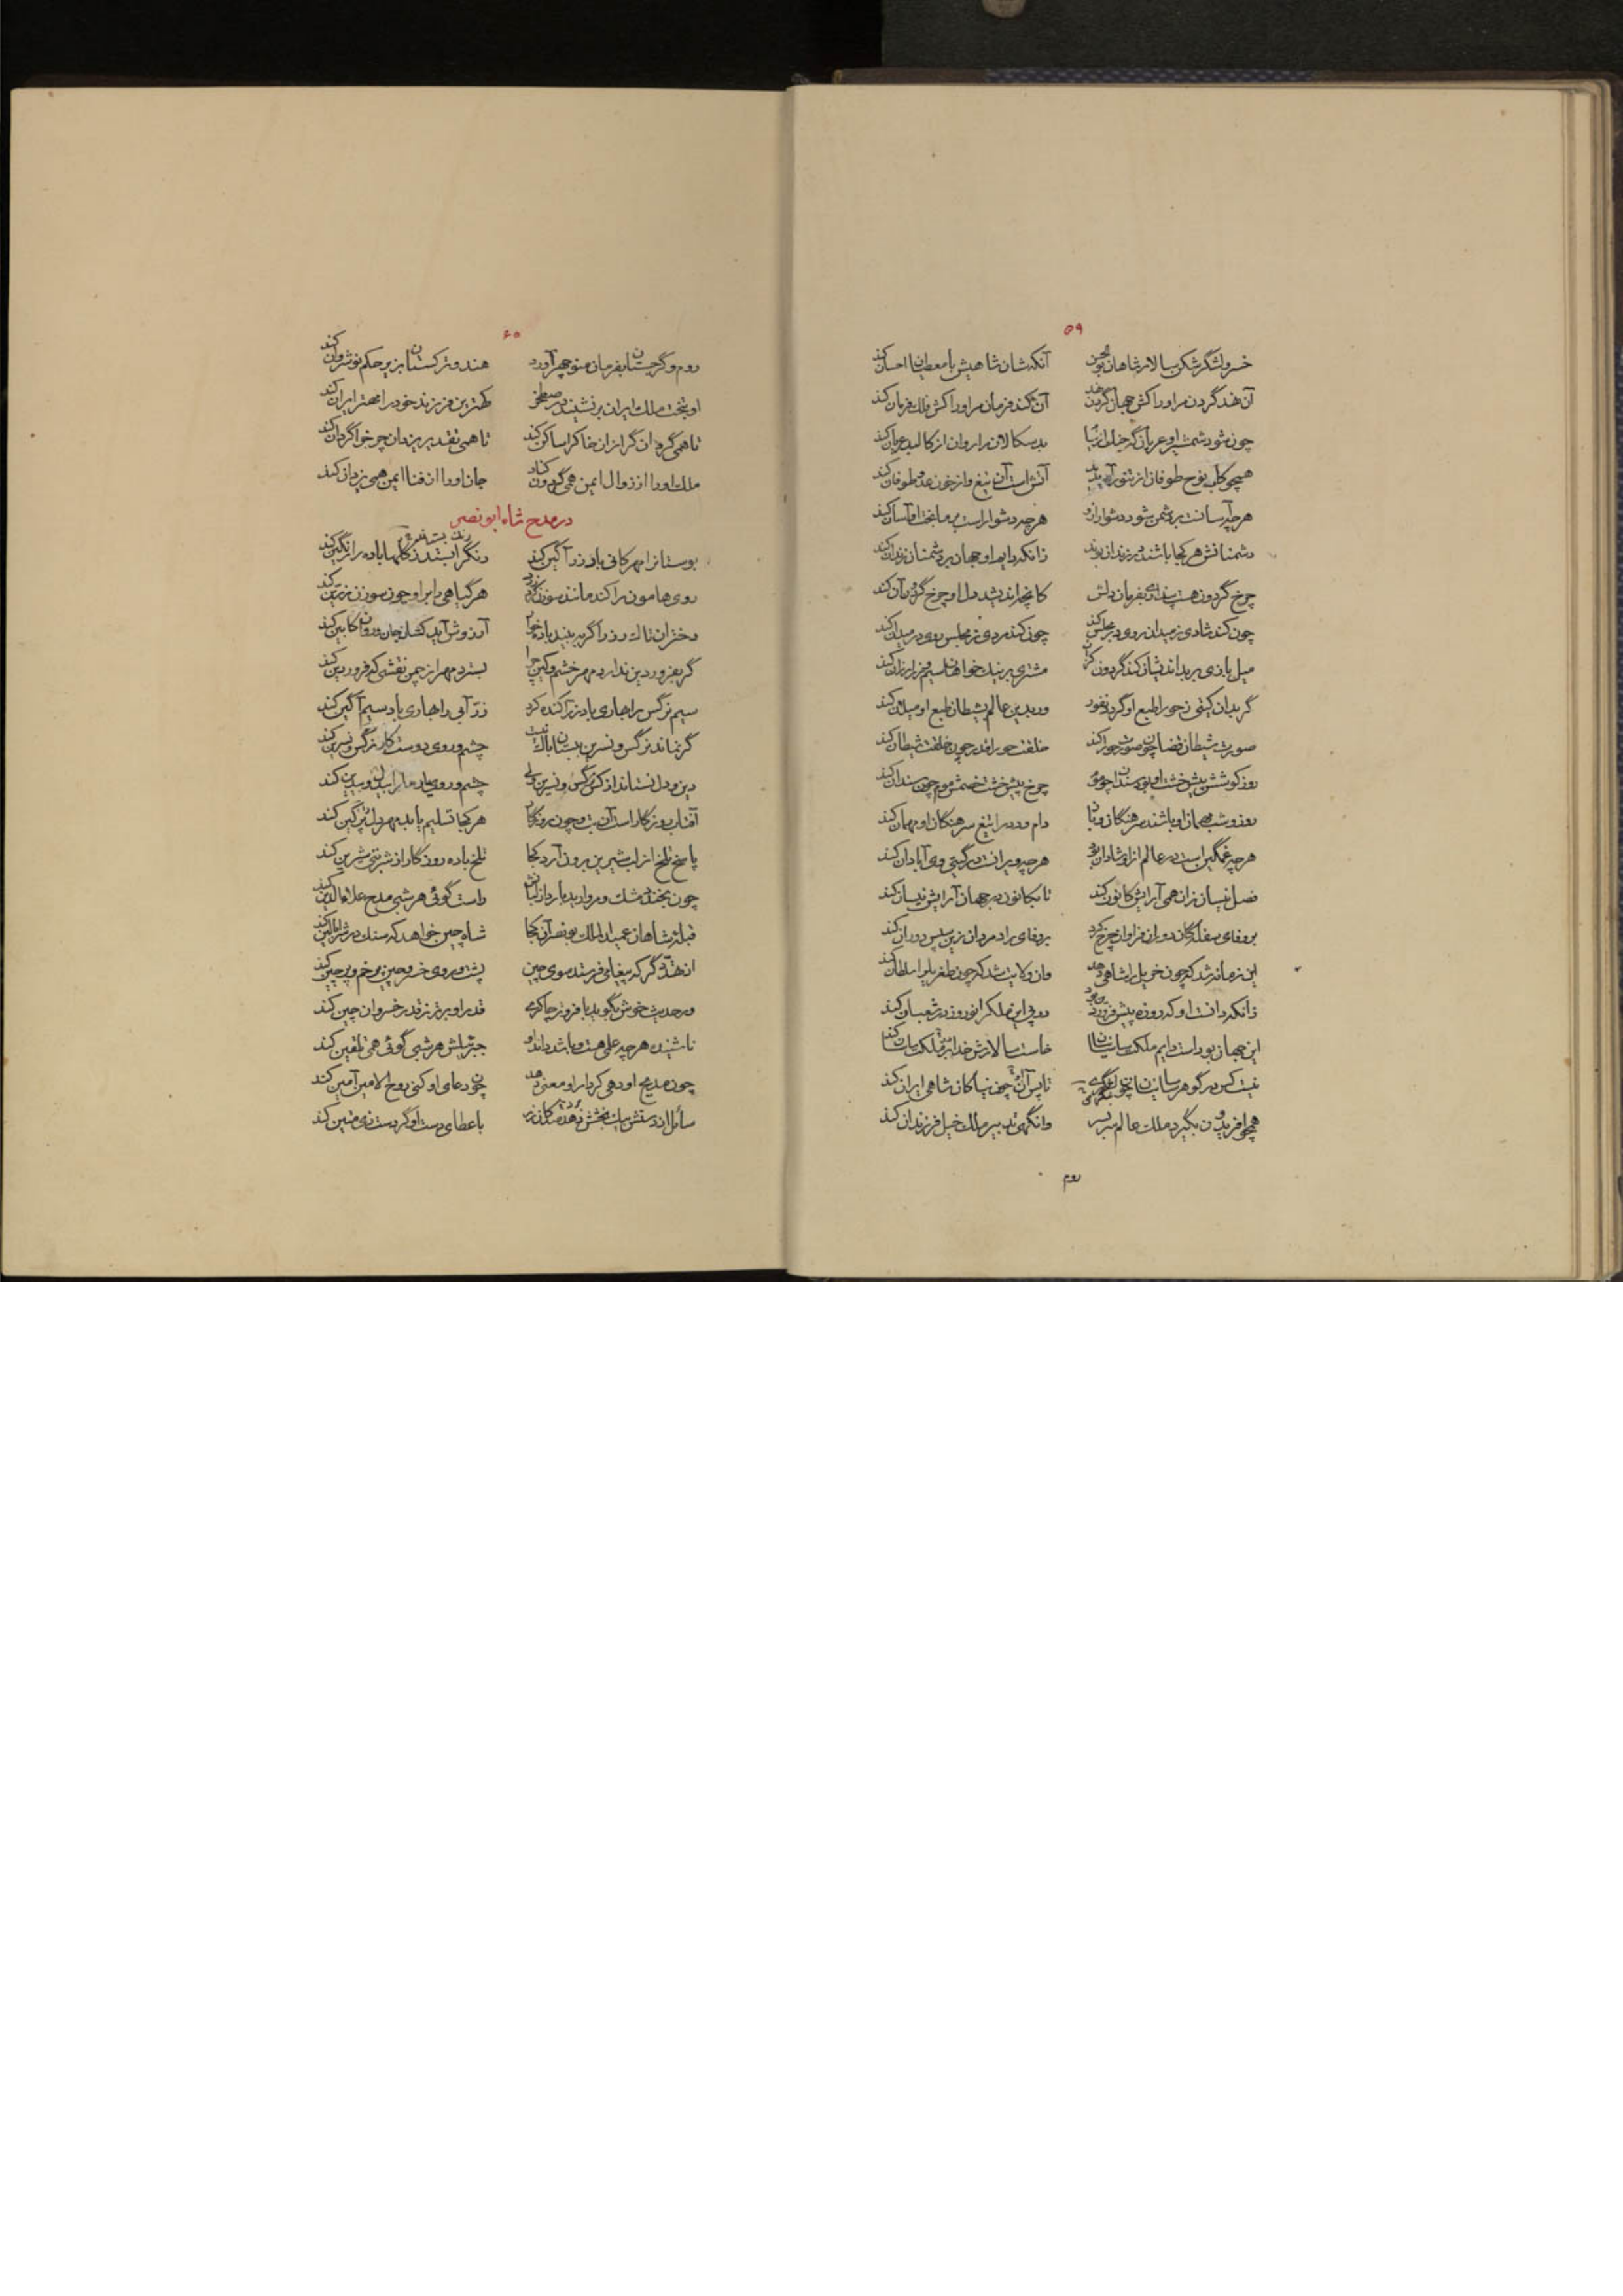 ۵۹
خسرو لشگرشکن سالار شاهان بوالحسن آنکه شان شاهیش با معطیان احسان کند
آن نهد گردن مر او را کش جهان گردن نهد آن کند فرمان مر او را کش فلک فرمان کند
چون شود شمشیر او عریان گه خیل از نیا بدسکالان را روان از کالبد عریان کند
همچو کاب نوح طوفان از تنور آمد پدید آتش است آن تیغ و از خون عدو طوفان کند
هرچه آسانست بر دشمن شود دشوار از او هرچه دشوار است بر ما بخت او آسان کند
دشمنانش هر کجا باشند در زندان بوند زانکه دایم او جهان بر دشمنان زندان کند
چرخ گردون هست پنداری بفرمان دلش کانچه اندیشد دل او چرخ گردون آن کند
چون کند شادی ز میدان روی در مجلس کند چون کند مردی ز مجلس روی در میدان کند
مشتری بر نیک خواهان سیم و زر ارزان کند
گر بدان گیتی ز حورا طبع او گیرد نفور ور بدین عالم بشیطان طبع او میلان کند
صورت شیطان قضا چون صورت حورا کند خلقت حورا قدر چون خلقت شیطان کند
روز کوشش پیش خشت او بود سندان چو موم چرخ پیش خشت خصمش موم چون سندان کند
روز و شب مهمان او باشند سرهنگان و باز دام و دد را تیغ سرهنگان او مهمان کند
هرچه غمگین است در عالم از او شادان شود هرچه ویرانست در گیتی وی آبادان کند
فصل نیسان زان همی آرایش کانون کند تا بکانون در جهان آرایش نیسان کند
بر وفای سفلگان دوران فراوان چرخ کرد بر وفای راد مردان زین سپس دوران کند
این زمانه شد که چون خربیل را شاهی دهد وان ولایت شد که چون طغرل را سلطان کند
زانکه دانست او که روزه پیش فروردین بود
این جهان بود است دایم ملکت ساسانیان خاست سالارش خدا از ملکت ساسان کند
نیست کس در گوهر ساسانیان چون لشگری تا پس آن چون نیاکان شاهی ایران کند
همچو افریدون بگیرد ملک عالم سر بسر وانگهی تدبیر ملک خیل فرزندان کند
روم
۶۰
روم و گرجستان بفرمان منوچهر آورد هند و ترکستان بزیر حکم نوشروان کند
او بتخت ملک ایران بر نشیند در صطخر کهترین فرزند خود را مهتر اران کند
تا همی گردان گرازان خاک را ساکن کند تا همی تقدیر یزدان چرخ را گردان کند
ملک او را از زوال ایمن همی گردون کناد جان او را از فنا ایمن همی یزدان کند
در مدح شاه ابونصر
بوستانرا مهرکانی باد زر آگین کند رنگ را بستند ز گلها باده را رنگین کند
روی هامون را کند مانند سوزن کرد زرد هر گیاهی را بر او چون سوزن زرین کند
دختران تاک رز را گر ببیند بادخوار آرزوش آید کشان جان و روان کابین کند
گر بفروردین ندارد مهر خشم و کین چرا بسترد مهر از چمن نقشی که فروردین کند
سیم نرگس را بهاری باد زر آکنده کرد زر آبی را بهاری باد سیم آگین کند
گر نماند نرگس و نسرین ببستان باک نیست چشم و روی دوست کار نرگس و نسرین کند
دین و دل نستاند از کس نرگس و نسرین ولی چشم و روی یار ما را بیدل و بیدین کند
آفتاب روزگار است آن بت و چون روزگار هر کجا تسلیم یابد مهر دل پر کین کند
پاسخ تلخ از لب شیرین برون آرد کجا تلخ باده روزگار از شربتی شیرین کند
چون بخندد مشک و مروارید بارد از لبانش راست گوئی هر شبی مدح علاءالدین کند
قبله شاهان عمید الملک بونصر آن کجا شاه چین خواهد که سنگ درش را بالین کند
از هند گر که پیغامی فرستد سوی چین پشت و روی خسرو چین پر خم و پر چین کند
ور حدیث خوش بگوید با فروتر چاکری قدر او برتر ز قدر خسروان چین کند
ناشنیده هرچه علم هست و باشد داند او جبرئیلش هر شبی گوئی همی تلقین کند
چون مدیح او دهی کردار او معنی دهد چون دعای او کنی روح الامین آمین کند
با عطای دست او گر دست زی متین کند